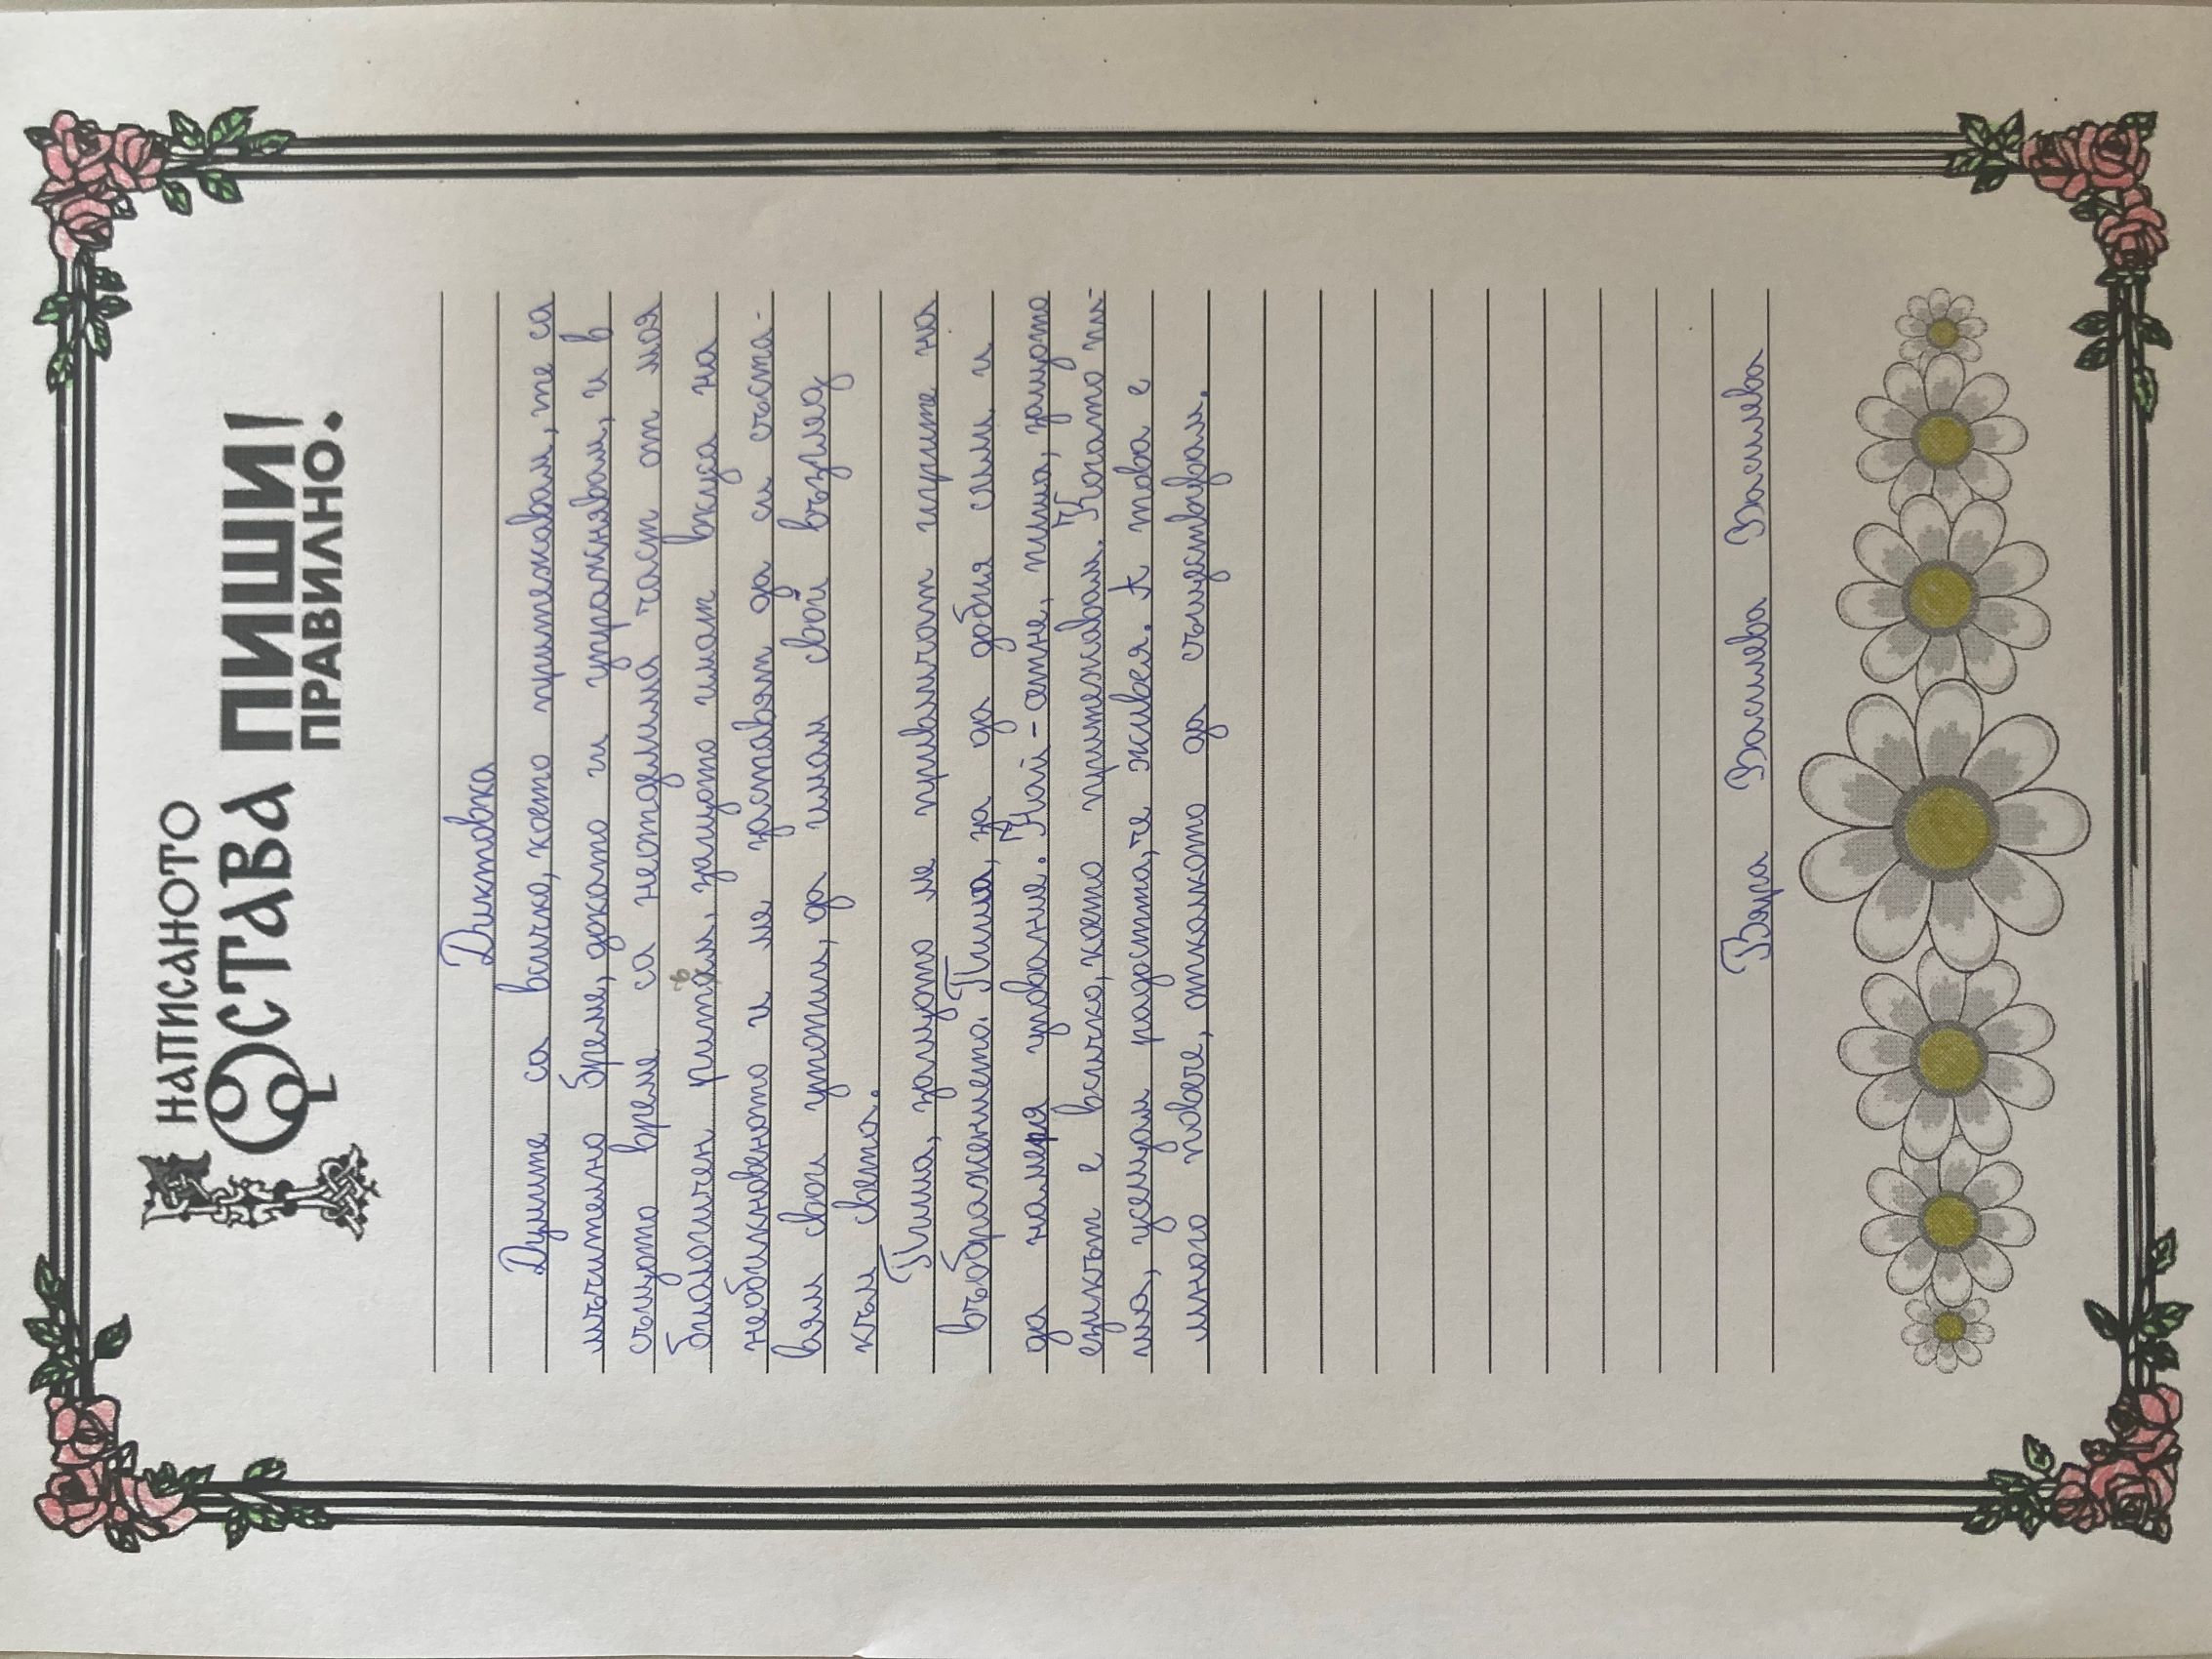 НАПИСАНОТО
ОСТАВА ПИШИ!
ПРАВИЛНО.
Диктовка
Думите са всичко, което притежавам, те са
мъчително бреме, докато ги упражнявам, и в
същото време са неотделима част от моя
биологичен ритъм, защото имат вкуса на
необикновеното и ме заставят да си съста-
вям свои утопии, да имам свой възглед
към света.
Пиша, защото ме привличат игрите на
въображението. Пиша, за да добия сили и
да намеря упование. Най-сетне, пиша, защото
езикът е всичко, което притежавам. Когато пи-
ша, усещам радостта, че живея. А това е
много повече, отколкото да съществувам.
Вяра Василева Василева